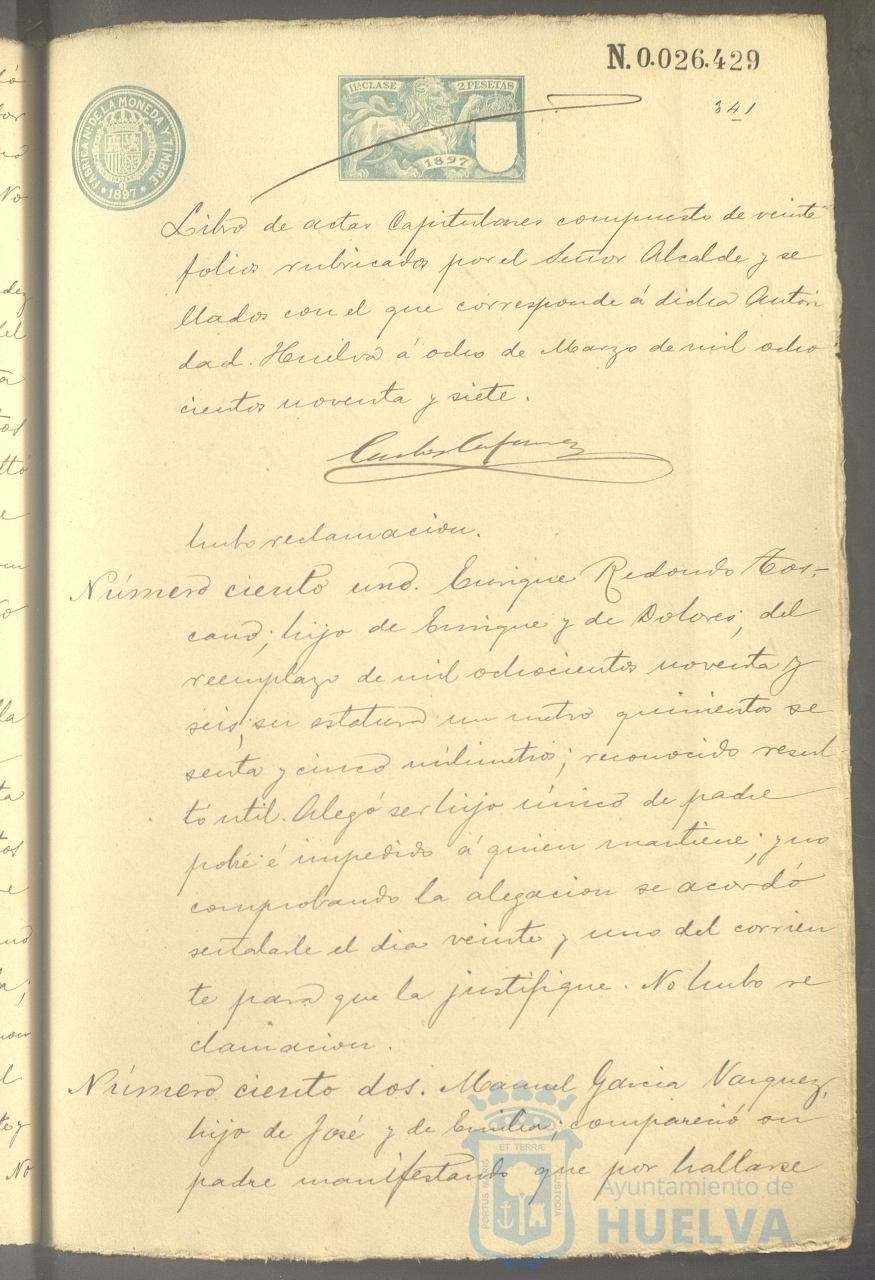 N. 0.026.429
341
FÁBRICA Nal. DE LA MONEDA Y TIMBRE
1897
11ª CLASE 2 PESETAS
1897
Libro de actas Capitulares compuesto de veinte
folios rubricados por el Señor Alcalde y se
llados con el que corresponde á dicha Autori
dad. Huelva á ocho de Marzo de mil ocho
cientos noventa y siete.
hubo reclamacion.
Número ciento uno. Enrique Redondo Tos-
cano; hijo de Enrique y de Dolores; del
reemplazo de mil ochocientos noventa y
seis, su estatura un metro quinientos se
senta y cinco milimetros; reconocido resul-
tó util. Alegó ser hijo único de padre
pobre é impedido á quien mantiene; y no
comprobando la alegacion se acordó
señalarle el dia veinte y uno del corrien
te para que la justifique. No hubo re
clamacion.
Número ciento dos. Manuel Garcia Vazquez,
hijo de José y de Emilia; compareció su
padre manifestando que por hallarse
PORTUS MARIS ET TERRÆ CUSTODIA
Ayuntamiento de
HUELVA